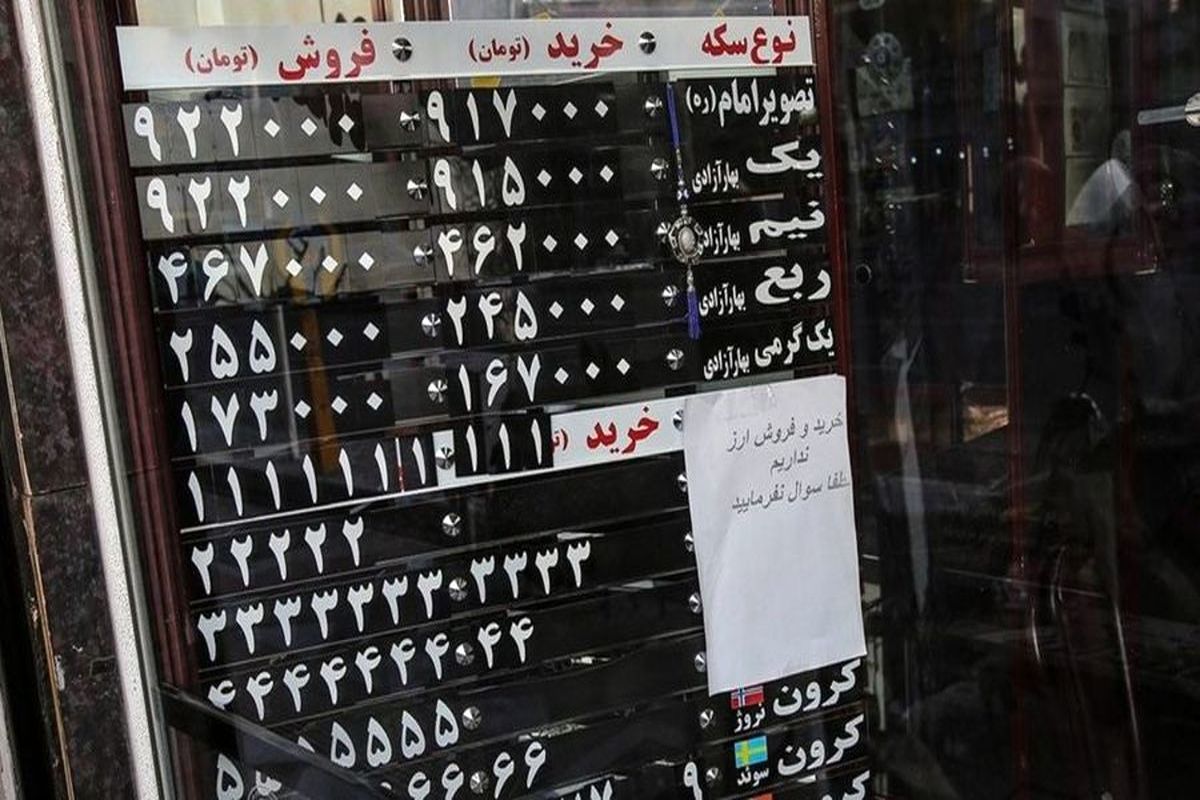 نوع سکه خرید (تومان) فروش (تومان)
تصویر امام (ره) ۹۱۷۰۰۰ ۹۲۲۰۰۰
یک بهار آزادی ۹۱۵۰۰۰ ۹۲۲۰۰۰
نیم بهار آزادی ۴۶۲۰۰۰ ۴۶۷۰۰۰
ربع بهار آزادی ۲۴۵۰۰۰ ۲۵۵۰۰۰
یک گرمی بهار آزادی ۱۶۷۰۰۰ ۱۷۳۰۰۰
خرید ۱۱۱ ۱۱۱۱۱۱۱
۲۲۲۲۲
۳۳۳۳ ۳۳۳۳۳۳۳
۴۴ ۴۴۴۴۴۴۴
۵۵۵۵
۶۶
خرید و فروش ارز
نداریم
سوال نفرمایید
کرون نروژ
کرون سوئد ۹